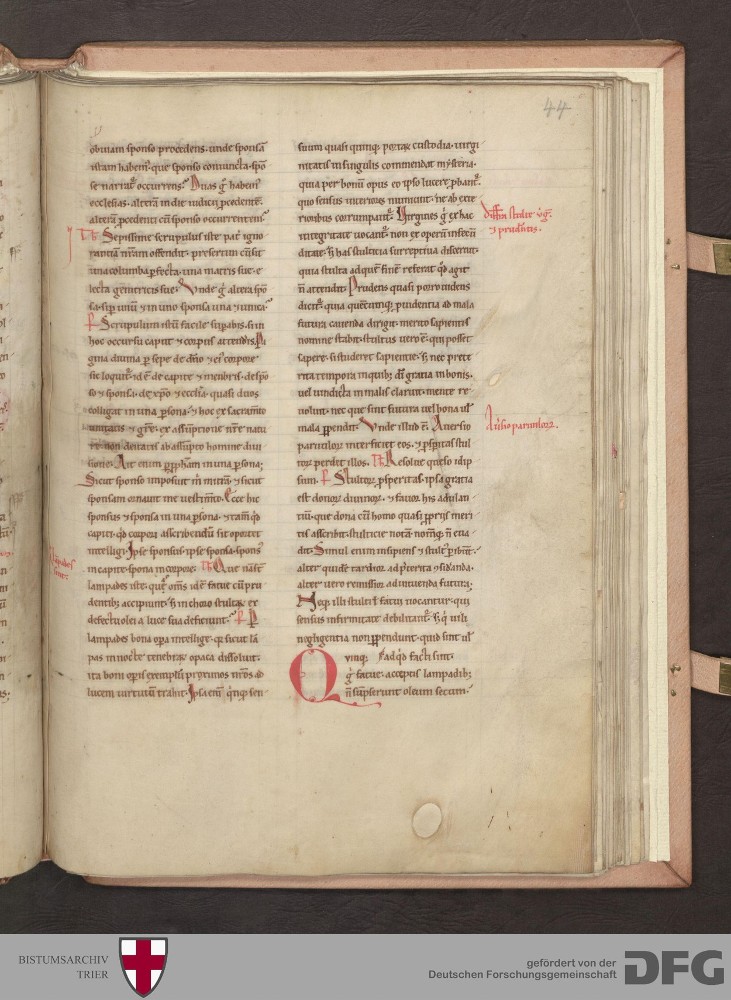 44
obuiam sponso procedens. unde sponsā
istam habem⁹. que sponso coniuncta. spō
se narrat᷑ occurrens. Duas g̊ habem⁹
ecclesias. alterā in die iudicij p̄cedentē.
alterā p̄cedenti cū sponso occurrentem.
Th̄. Sepissime scrupulus iste
una columba ꝑfecta. una matris sue. e
lecta genitricis sue. Unde g̊ altera spō
sa. sup̄ unū & in uno sponsa una & unica.
P̄ Scrupulum istū facile supabis. si in
hoc occursu caput & corpus attendis. Pa
gina diuina ꝑ sepe de dn̄o & ei⁹ corpore
sic loquit᷑. id ē de capite & membris. de spō
so & sponsa. de xp̄o & eccl̄ia. quasi duos
colligat in una ꝑsona. & hoc ex sacram̄to
unitatis & gr̄e. ex assumptione nr̄e natu
re non deitatis ab assūpto homine diui
sione. Ait enim ꝑ ꝓph̄am in una ꝑsona;
Sicut sponso imposuit m̄ mitrā. & sicut
sponsam ornauit me uestim̄to. Ecce hic
sponsus & sponsa in una ꝑsona. & tam̄ qđ
capiti. qđ corpori asscribendū sit oportet
intelligi. Ipse sponsus. ipse sponsa. spons⁹
in capite. sponsa in corpore. Th̄. Que
lampades iste. que om̄s id ē fatue cū pru
dentib⁊ accipiunt. ħ in choro stultaꝝ ex
defectu olei a luce sua deficiunt. P̄
lampades bona opa intellige. q̄ sicut lā
pas in nocte tenebraꝝ opaca dissoluit.
ita boni opis exemplū ꝓximos nr̄os ad
lucem uirtutum trahit. Ipsa em̄ q̄nq̄ sen
suum quasi quinq̄ portaꝝ custodia. uirgi
nitatis in singulis commendat mysteria.
quia per bonū opus eo ipso lucere ꝓbant᷑.
quo sensus interiores muniunt. ne ab exte
rioribus corrumpant᷑. Uirgines g̊ ex hac
integritate uocant᷑. non ex operū infecū
ditate. ħ has stulticia surreptiua discernit.
quia stulta ad quē finē referat qđ agit
n̄ attendit. Prudens quasi porro uidens
dicit᷑. quia quecūq̄ prudentia ad mala
futura cauenda dirigit. merito sapientis
nomine stabit. stultus uero ē. qui posset
sapere. si studeret sapientie. ħ nec prete
rita tempora in quib⁊ dī gratia in bonis.
uel uindicta in malis claruit. mente re
uoluit. nec que sint futura uel bona uł
mala ꝑpendit. Unde illud ē. Auersio
paruuloꝝ interficiet eos. & ꝓsꝑitas stul
toꝝ perdet illos. Th̄. Resolue queso id ip
sum. P̄. Stultoꝝ ꝓsperitas. ipsa gratia
est donoꝝ diuinoꝝ. & fauor his adulan
tiū. que dona cū homo quasi ꝓprijs meri
tis asscribit. stulticie notam. normā n̄ eua
dit. Simul enim insipiens & stult⁹ ꝑibūt.
alter quidē tardior ad p̄terita & uidenda.
alter uero remissior ad inuenda futura.
Neq̄ illi stulti ł fatui uocantur. qui
sensus infirmitate debilitant᷑. ħ q̄ uili
negligentia non ꝑpendunt. quid sint uł
ad qđ facti sint.
Quinq̄ g̊ fatue. acceptis lampadib⁊
n̄ sūpserunt oleum secum.
Diffꝛa stultaꝝ ūg̃.
& prudentis.
Auersio paruuloꝝ.
BISTUMSARCHIV
TRIER
gefördert von der
Deutschen Forschungsgemeinschaft
DFG